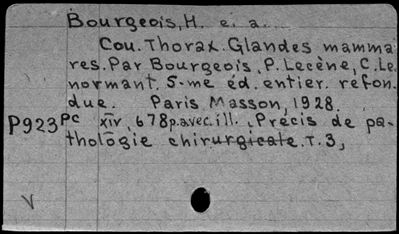 Bourgeois, H. e. a.
Cou. Thorax. Glandes mamma
res. Par Bourgeois, P. Lecène, C. Le
normant. 5-me éd. entier. refon.
due. Paris Masson, 1928.
P923 Pc XIV, 678 p. avec. ill. Précis de pa-
thologie chirurgicale. T. 3,
V